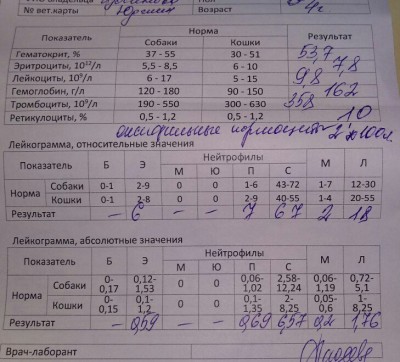 № вет.карты Возраст 4г
Показатель Норма Результат
Собаки Кошки
Гематокрит, % 37 - 55 30 - 51 53,7
Эритроциты, 10¹²/л 5,5 - 8,5 6 - 10 7,8
Лейкоциты, 10⁹/л 6 - 17 5 - 15 9,8
Гемоглобин, г/л 120 - 180 90 - 150 162
Тромбоциты, 10⁹/л 190 - 550 300 - 630 358
Ретикулоциты, % 0,5 - 1,2 0,5 - 1,2 1,0
оксифильные нормоциты
Лейкограмма, относительные значения
Показатель Б Э Нейтрофилы М Л
М Ю П С
Норма Собаки 0-1 2-9 0 0 1-6 43-72 1-7 12-30
Кошки 0-1 2-8 0 0 2-9 40-55 1-4 20-55
Результат – 6 – – 7 67 2 18
Лейкограмма, абсолютные значения
Показатель Б Э Нейтрофилы М Л
М Ю П С
Норма Собаки 0-0,17 0,12-1,53 0 0 0,06-1,02 2,58-12,24 0,06-1,19 0,72-5,1
Кошки 0-0,15 0,1-1,2 0 0 0,1-1,35 2-8,25 0,05-0,6 1-8,25
Результат – 0,59 – – 0,69 6,57 0,2 1,76
Врач-лаборант